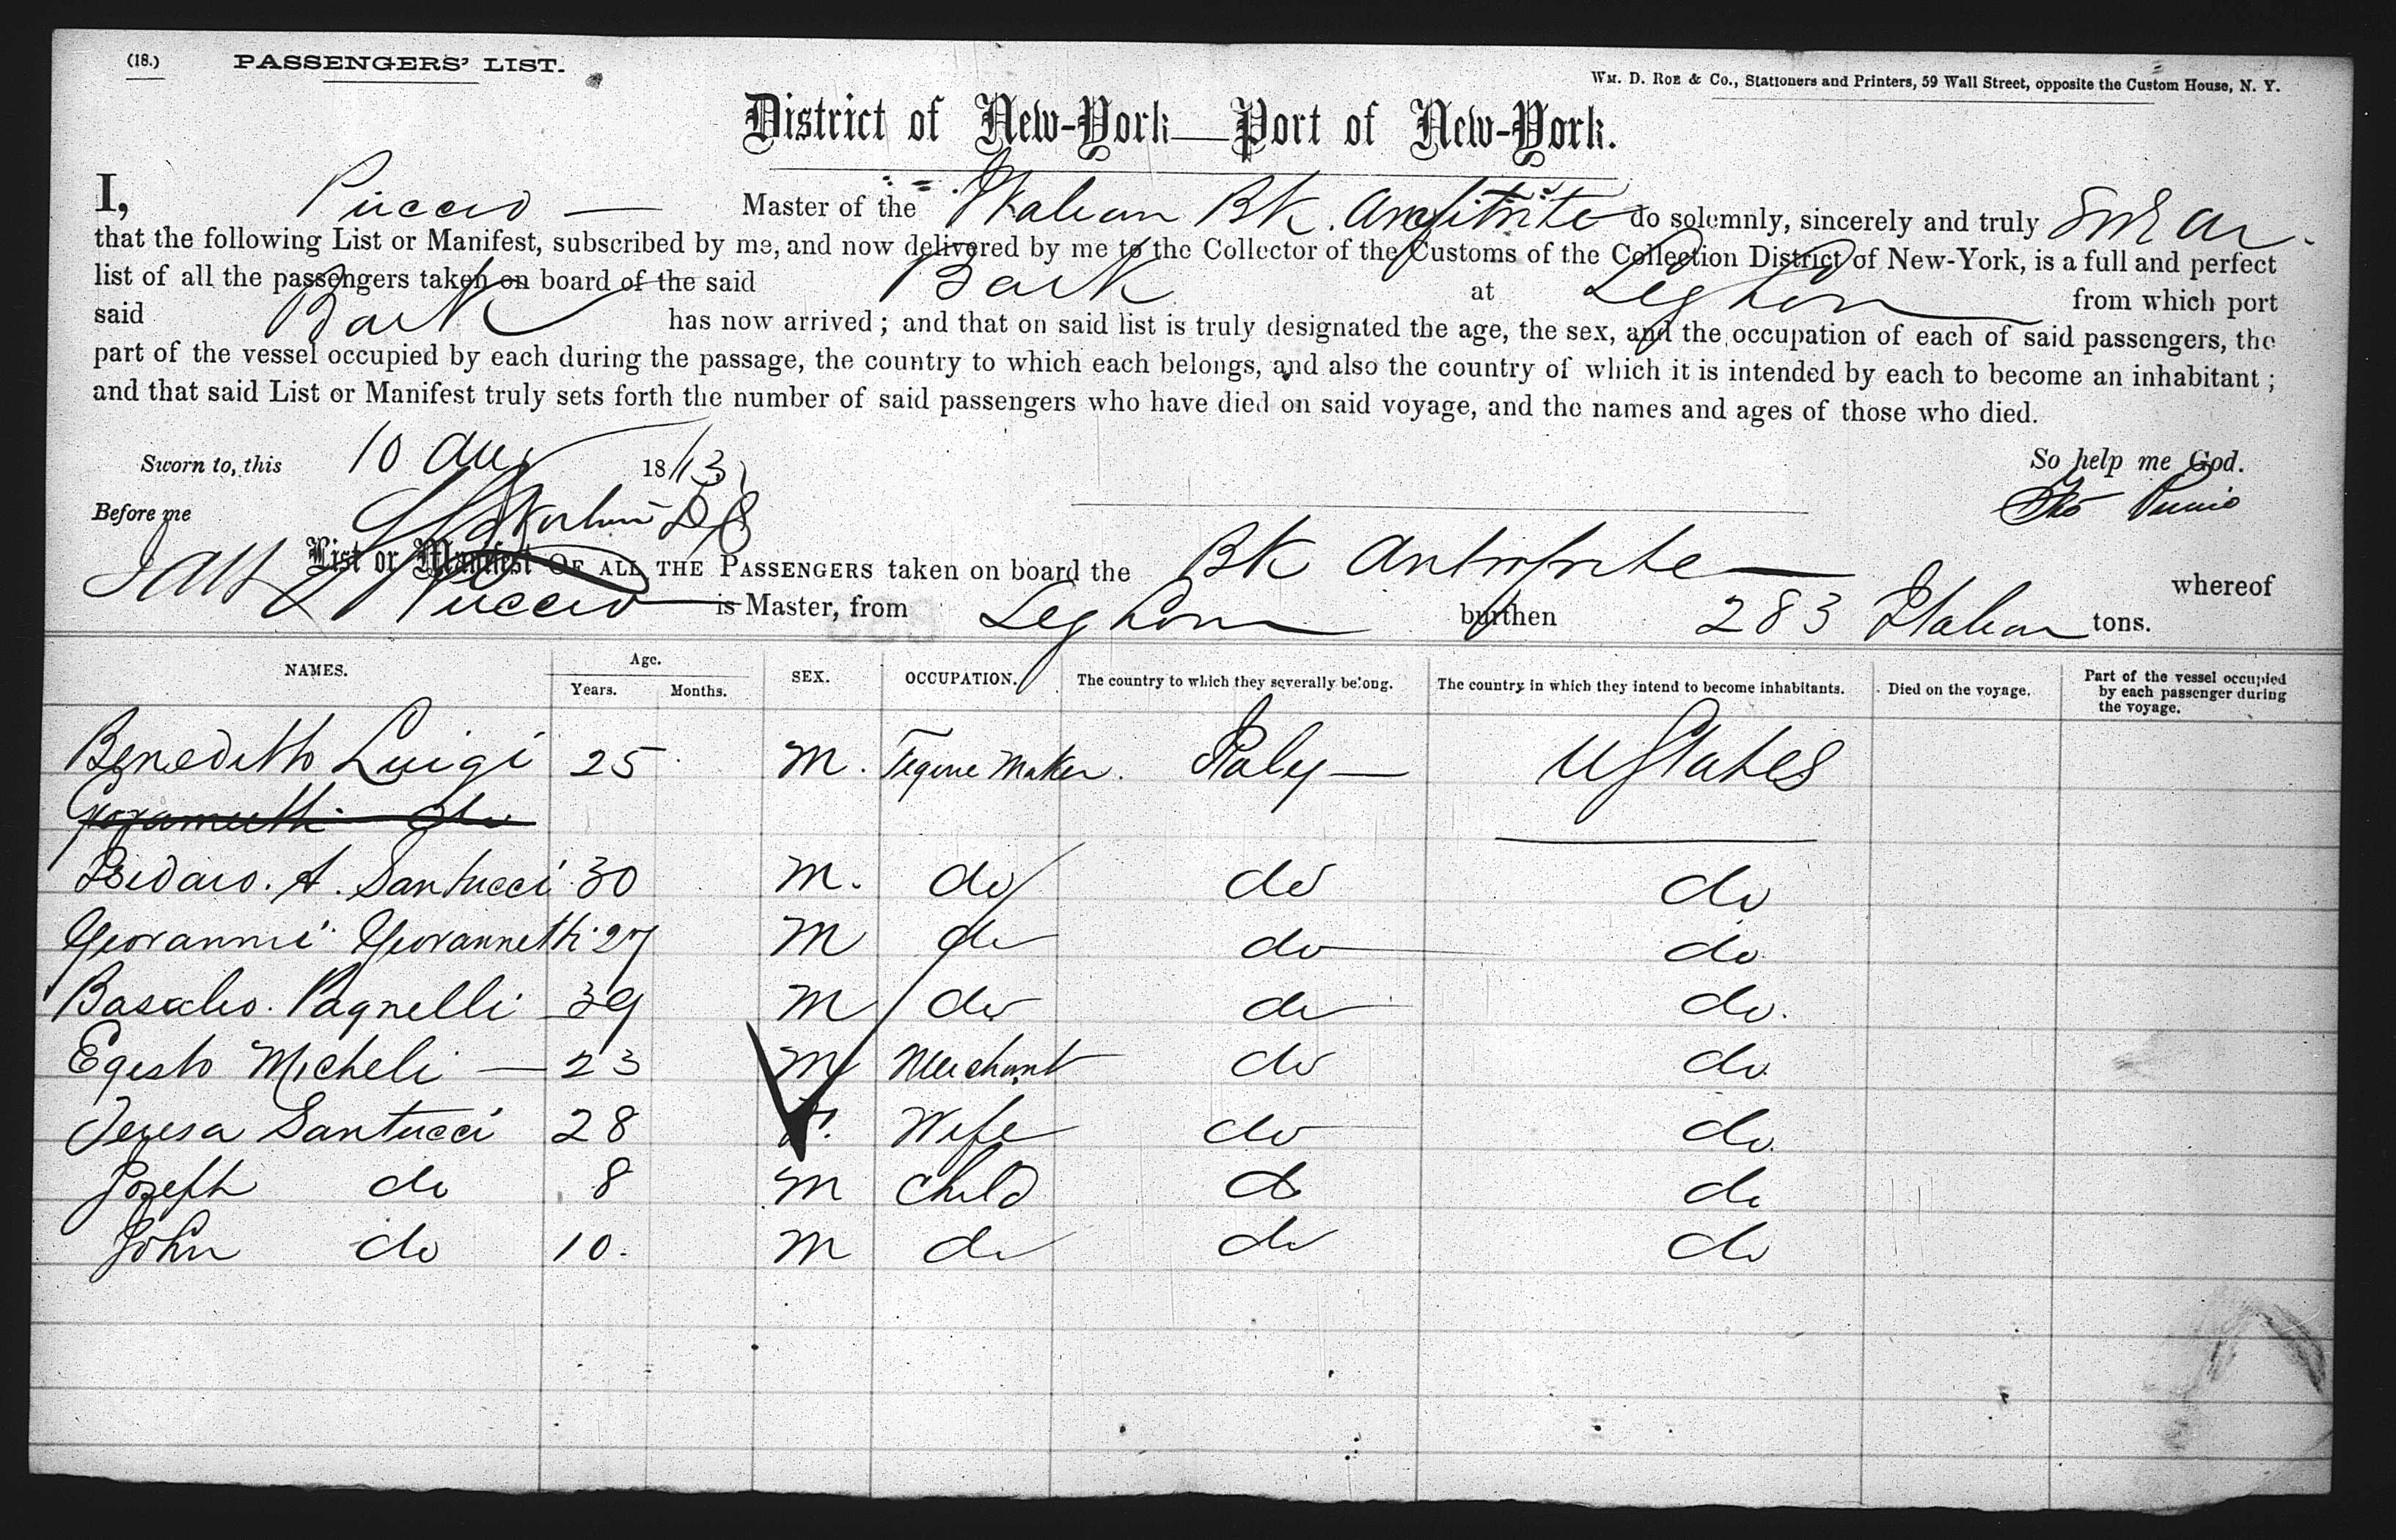 (18.) PASSENGERS' LIST.
WM. D. ROE & Co., Stationers and Printers, 59 Wall Street, opposite the Custom House, N. Y.
District of New-York—Port of New-York.
I, Puccio — Master of the Italian Bk. Amfitrite do solemnly, sincerely and truly
that the following List or Manifest, subscribed by me, and now delivered by me to the Collector of the Customs of the Collection District of New-York, is a full and perfect
list of all the passengers taken on board of the said Bark at Leghorn from which port
said Bark has now arrived; and that on said list is truly designated the age, the sex, and the occupation of each of said passengers, the
part of the vessel occupied by each during the passage, the country to which each belongs, and also the country of which it is intended by each to become an inhabitant;
and that said List or Manifest truly sets forth the number of said passengers who have died on said voyage, and the names and ages of those who died.
Sworn to, this 10 Aug 1873 So help me God.
Before me
List or Manifest OF ALL THE PASSENGERS taken on board the Bk whereof
Puccio is Master, from Leghorn burthen 283 Italian tons.
NAMES. Age. Years. Months. SEX. OCCUPATION. The country to which they severally belong. The country in which they intend to become inhabitants. Died on the voyage. Part of the vessel occupied by each passenger during the voyage.
Beneditto Luigi 25 M. Figure Maker. Italy — U States
A. Santucci 30 M. do do do
Giovanni Giovannetti 27 M do do do
Pagnelli 39 M do do do.
Egisto Micheli — 23 M Merchant do do
Teresa Santucci 28 Wife do do.
Joseph do 8 M Child do do
John do 10. M do do do